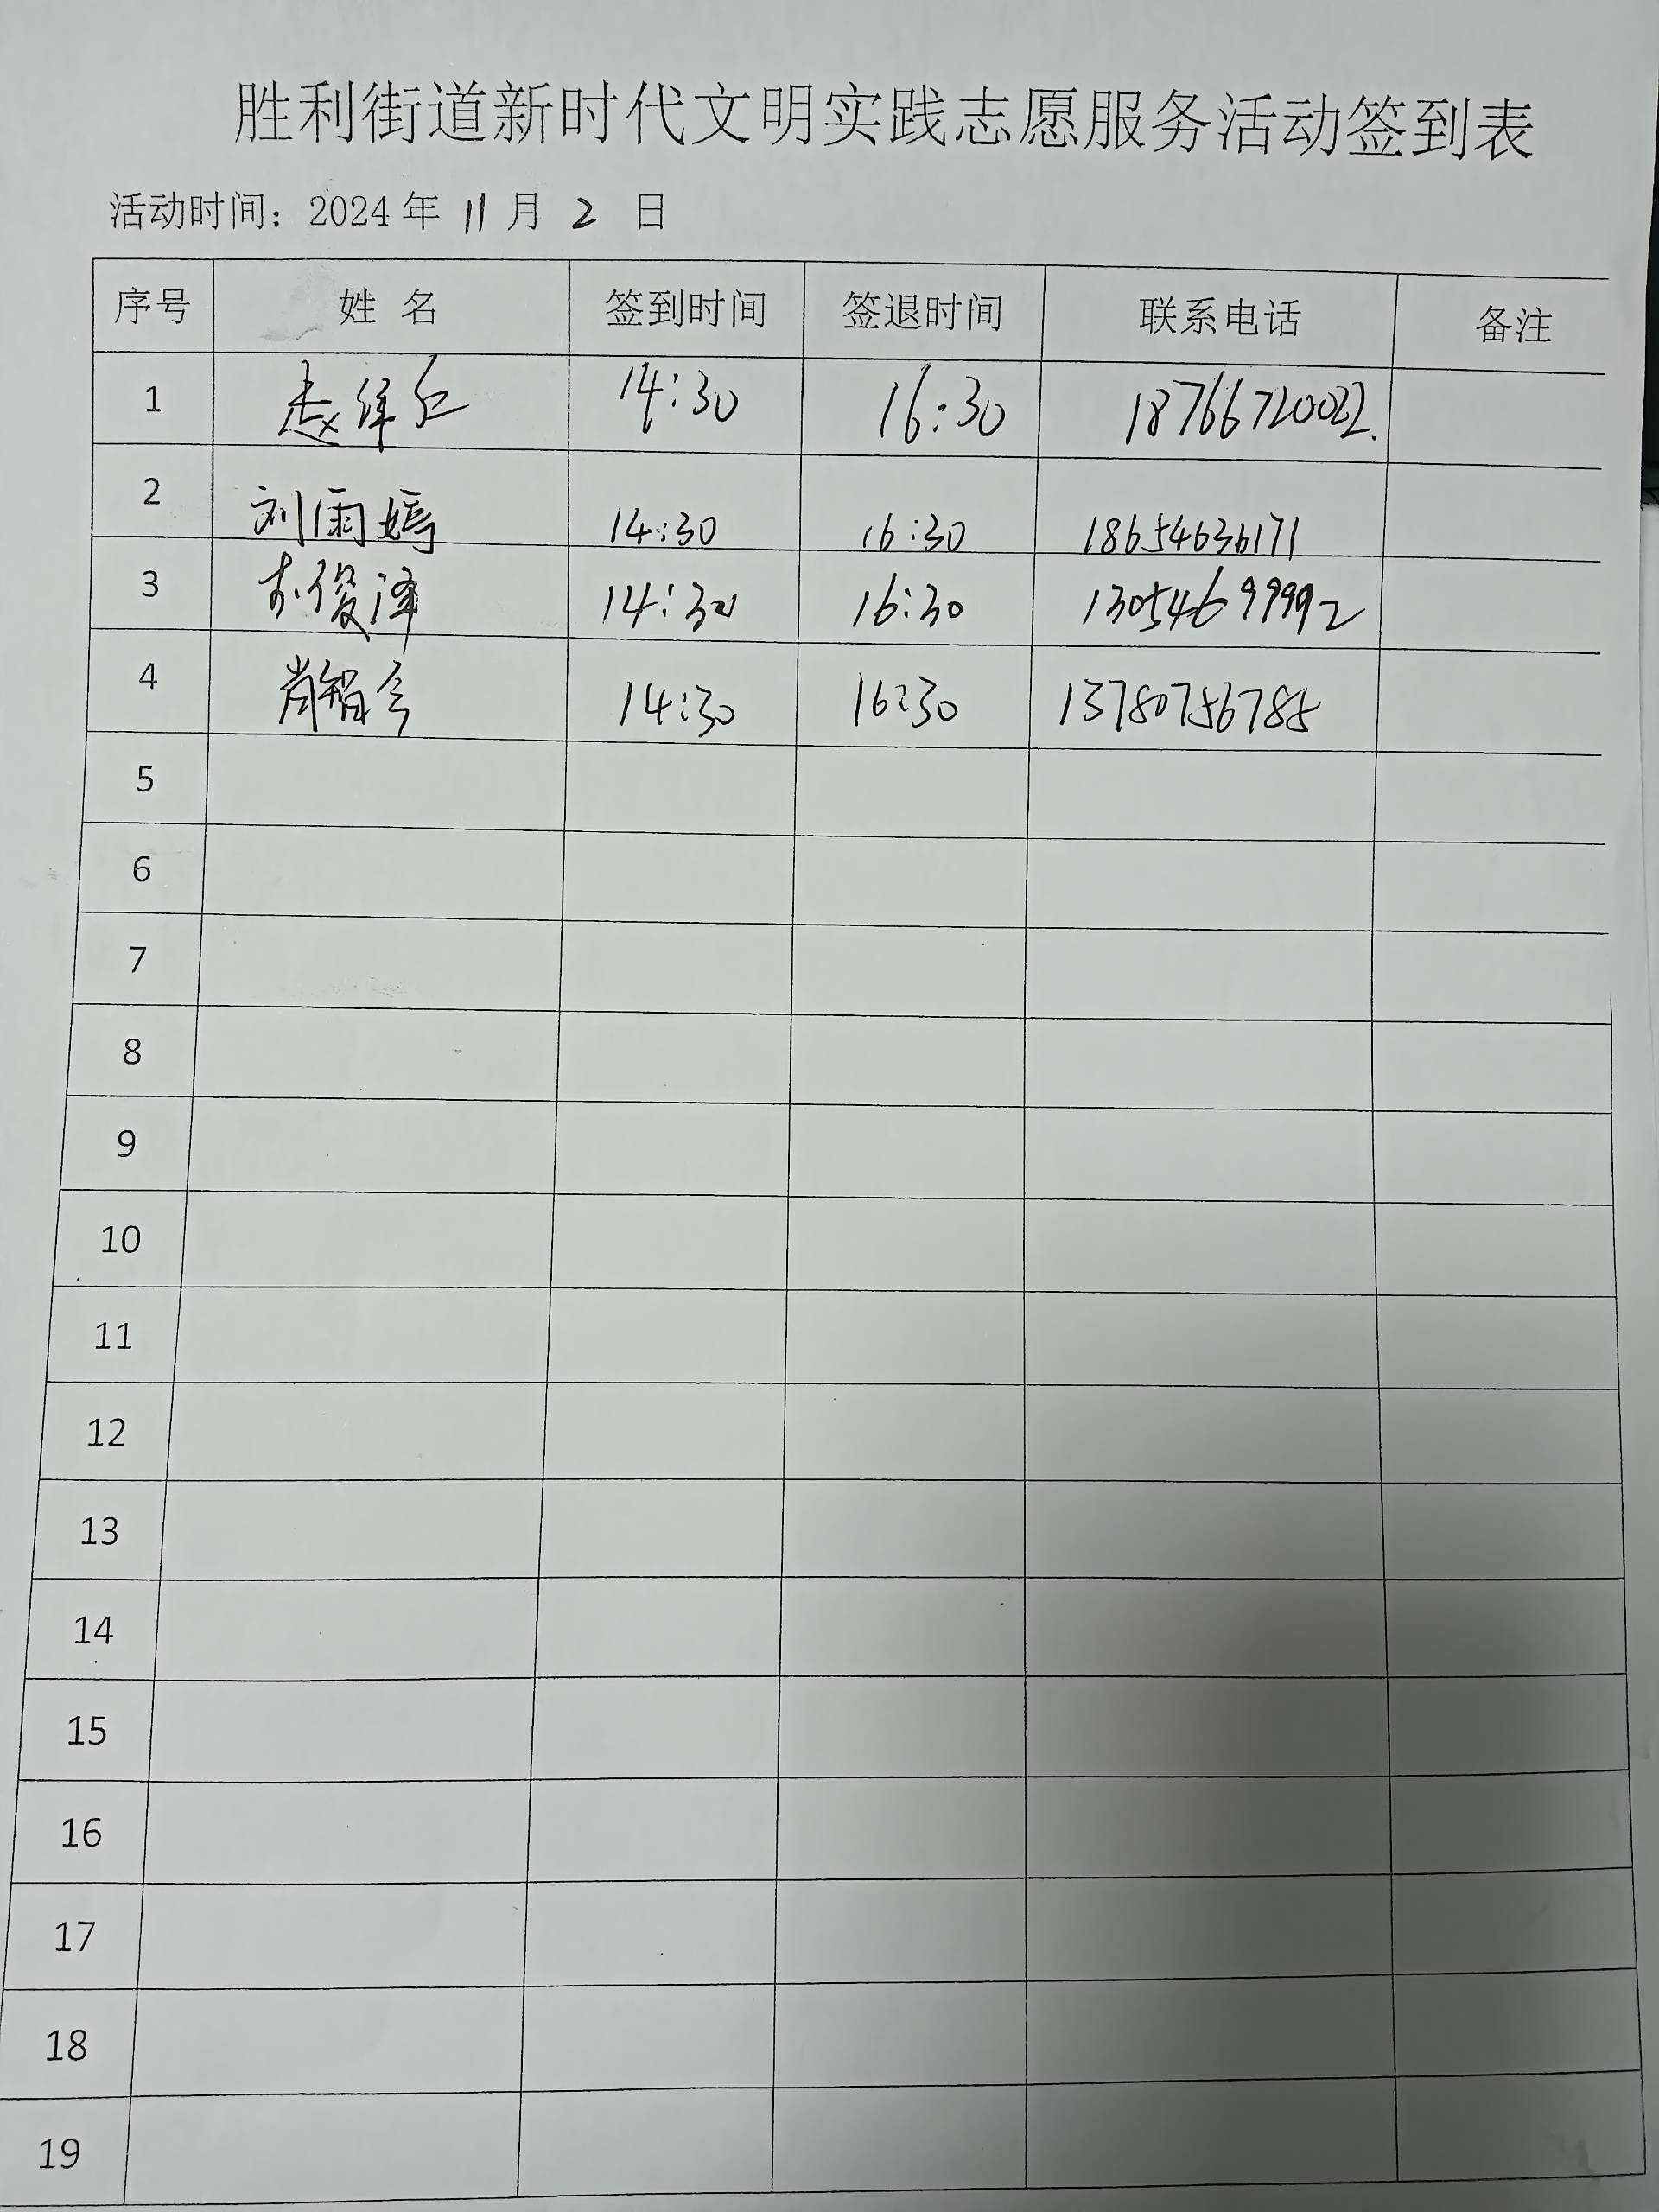 胜利街道新时代文明实践志愿服务活动签到表
活动时间：2024 年 11 月 2 日
序号 姓 名 签到时间 签退时间 联系电话 备注
1 赵 14:30 16:30 18766720022.
2 刘雨嫣 14:30 16:30 18654636171
3 俊泽 14:30 16:30 13054699992
4 肖智 14:30 16:30 13780756785
5
6
7
8
9
10
11
12
13
14
15
16
17
18
19